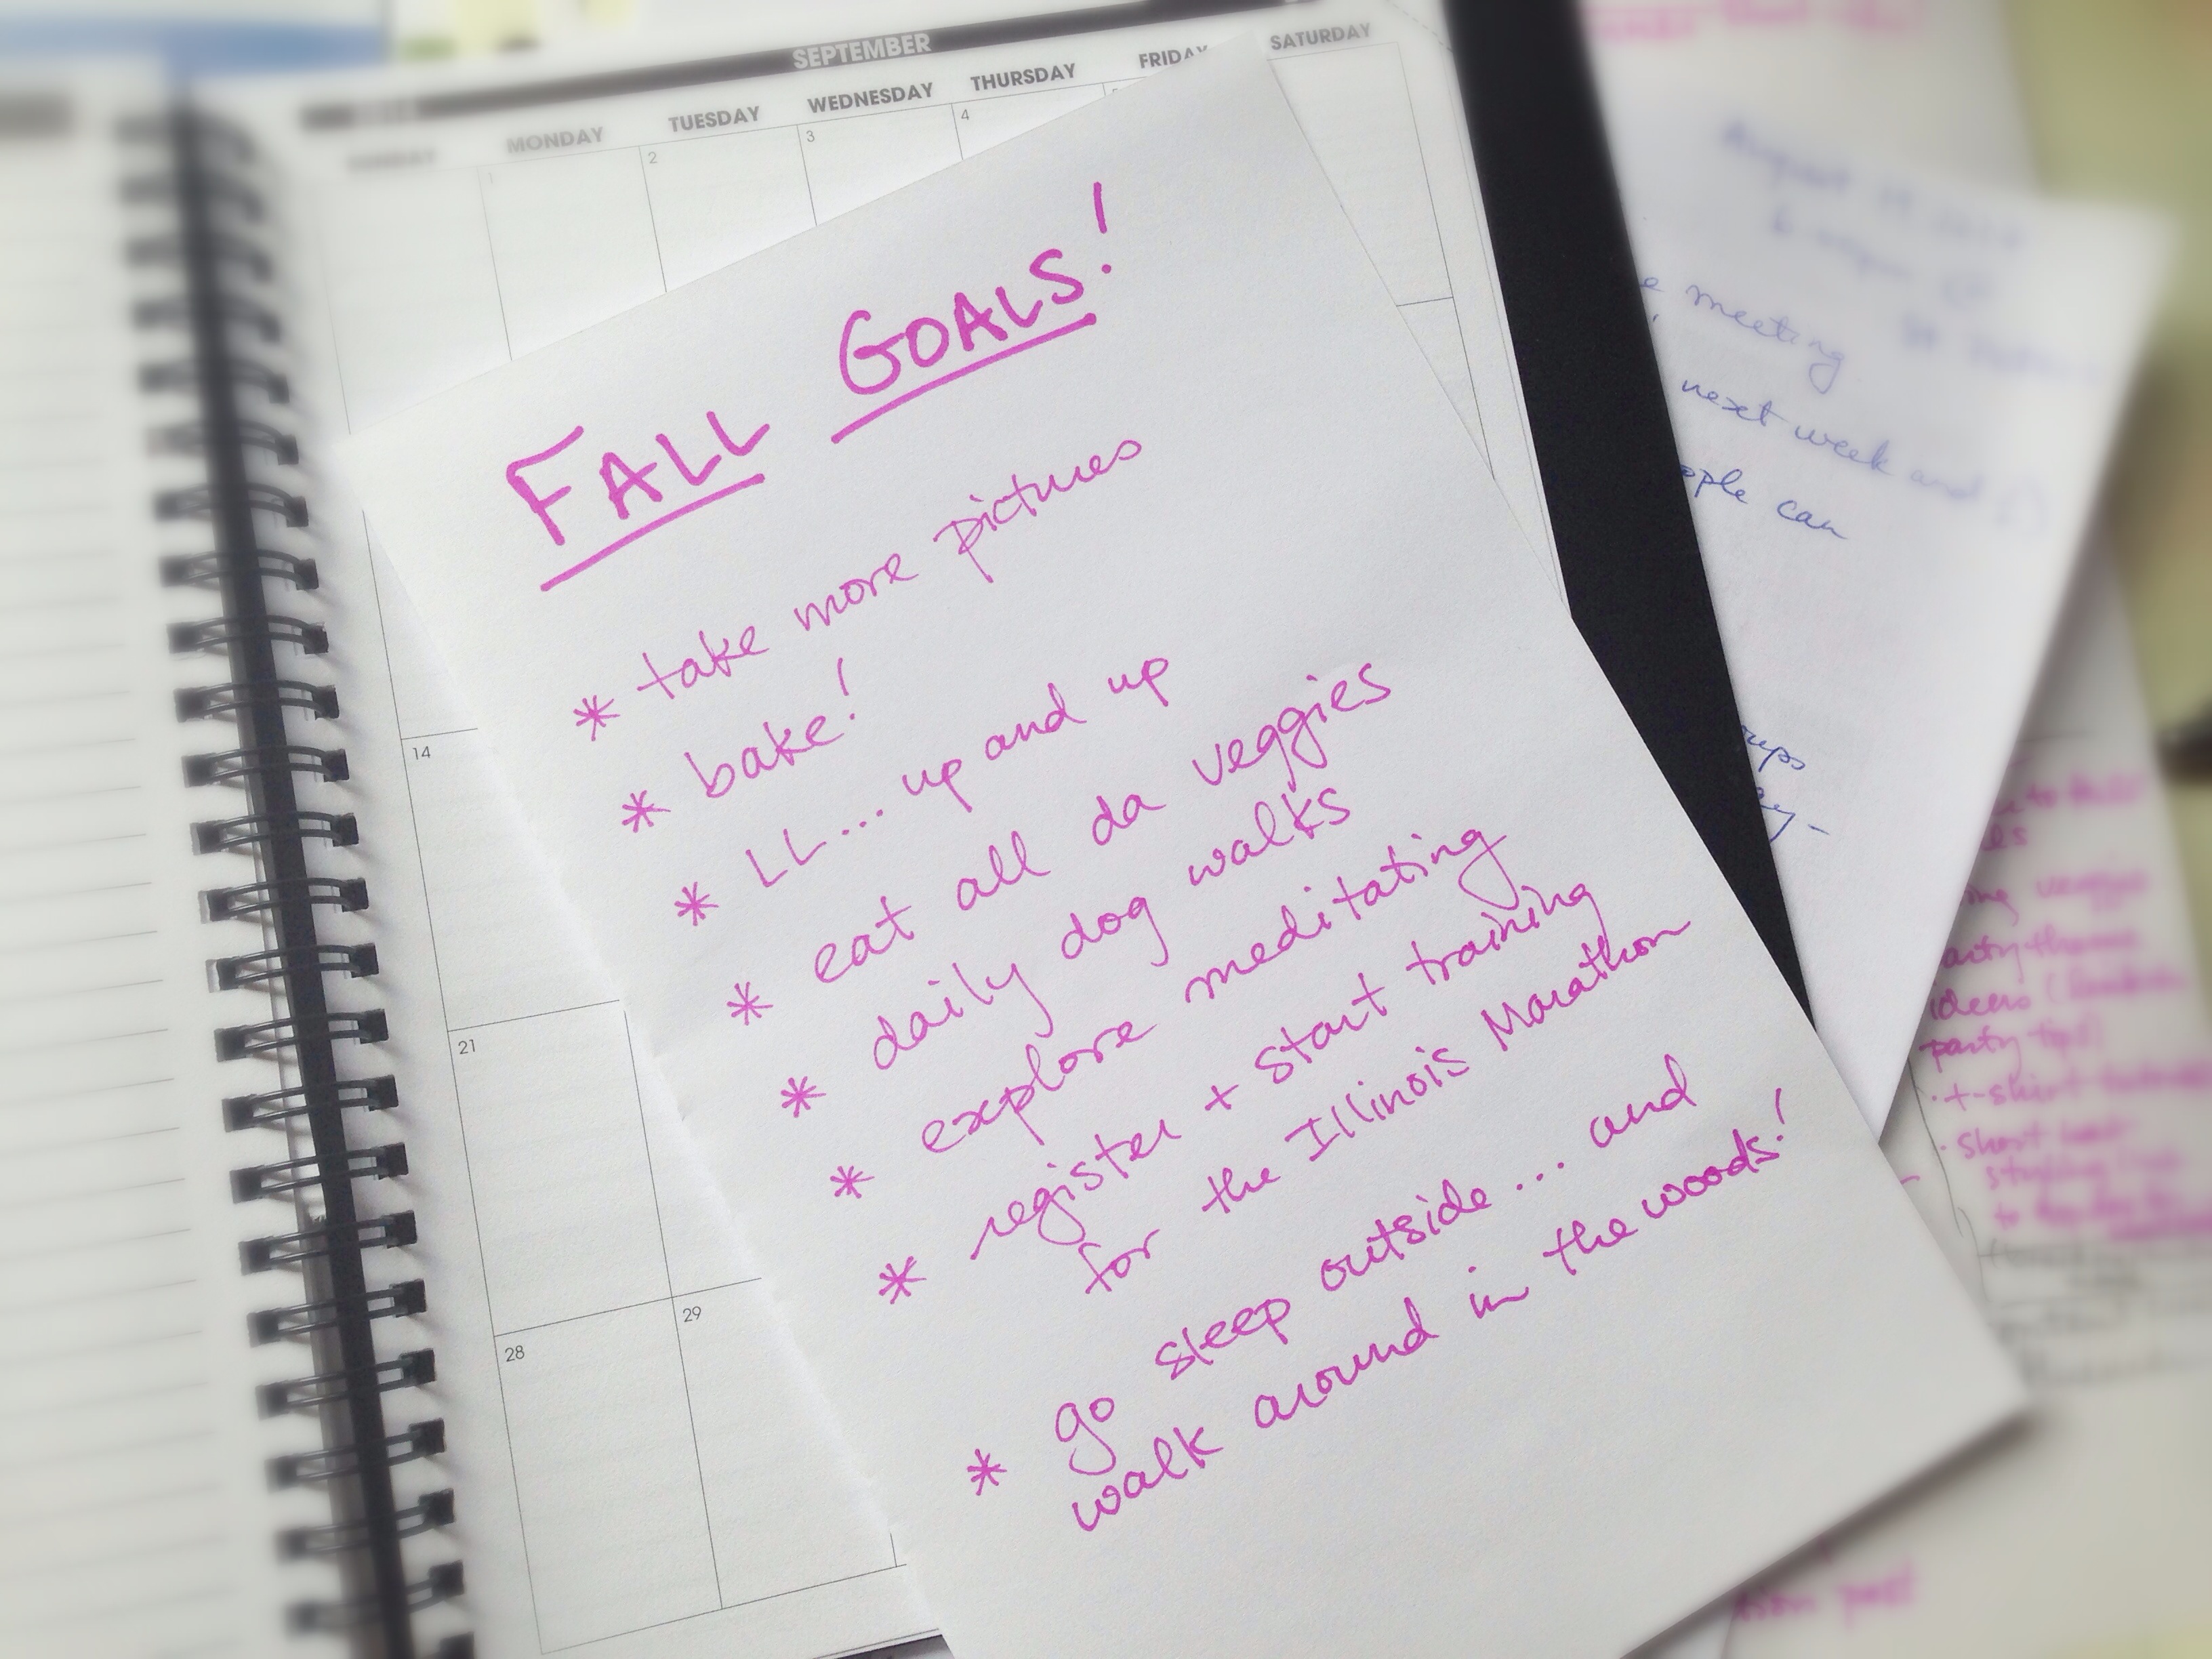 SEPTEMBER
MONDAY TUESDAY WEDNESDAY THURSDAY FRIDAY SATURDAY
1 2 3 4
14
21
28 29
FALL GOALS!
* take more pictures
* bake!
* LL... up and up
* eat all da veggies
* daily dog walks
* explore meditating
* register + start training
for the Illinois Marathon
* go sleep outside... and
walk around in the woods!
meeting
next week and
can
party tips)